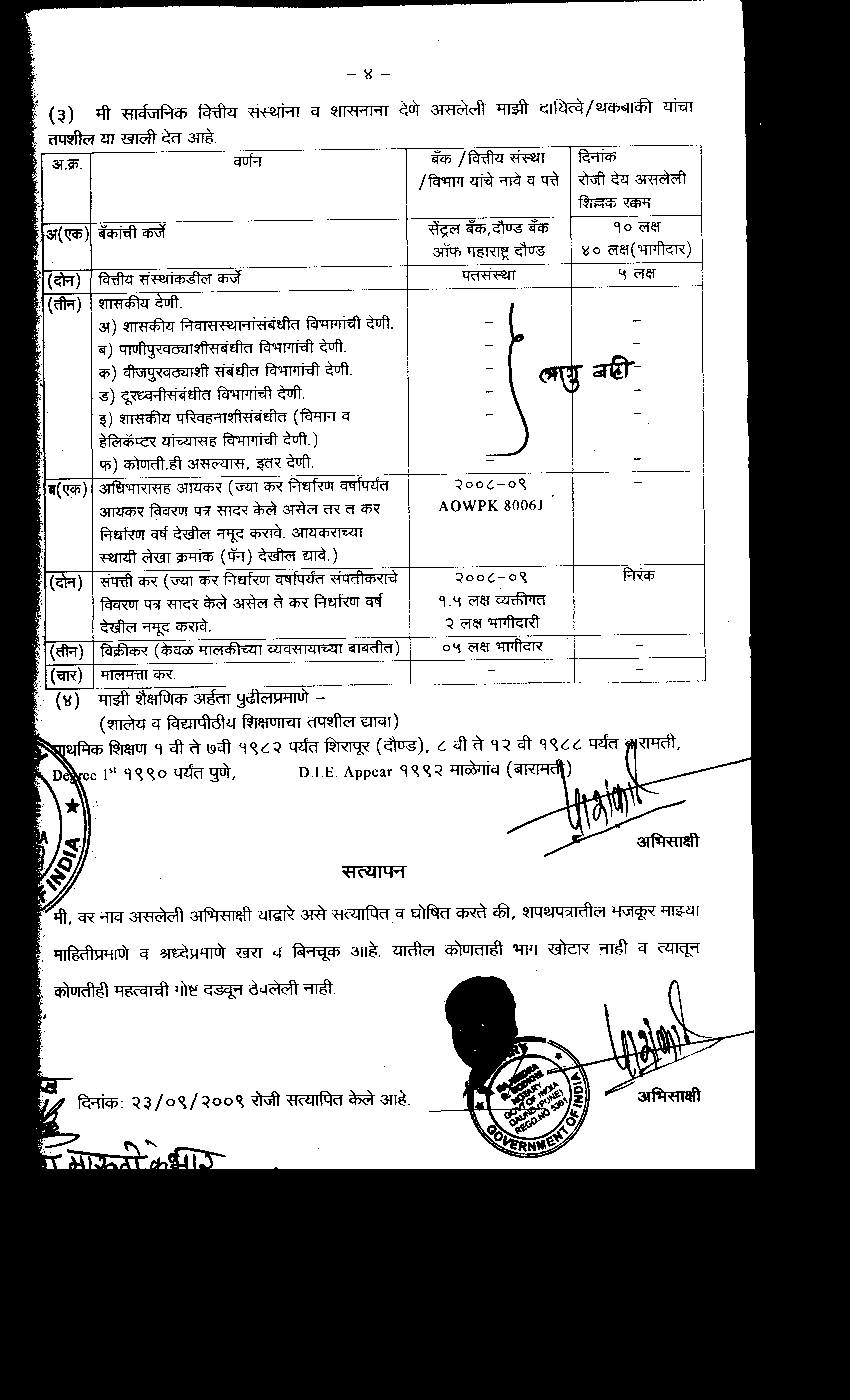 – ४ –
(३) मी सार्वजनिक वित्तीय संस्थांना व शासनाना देणे असलेली माझी दायित्वे/थकबाकी यांचा
तपशील या खाली देत आहे.
अ.क्र. वर्णन बँक /वित्तीय संस्था /विभाग यांचे नावे व पत्ते दिनांक रोजी देय असलेली शिल्लक रक्कम
अ(एक) बँकांची कर्जे सेंट्रल बँक,दौण्ड बँक १० लक्ष
ऑफ महाराष्ट्र दौण्ड ४० लक्ष(भागीदार)
(दोन) वित्तीय संस्थांकडील कर्जे पतसंस्था ५ लक्ष
(तीन) शासकीय देणी.
अ) शासकीय निवासस्थानांसंबंधीत विभागांची देणी. – –
ब) पाणीपुरवठ्याशीसबंधीत विभागांची देणी. – –
क) वीजपुरवठ्याशी संबंधीत विभागांची देणी. – लागु नाही –
ड) दूरध्वनीसंबंधीत विभागांची देणी. – –
इ) शासकीय परिवहनाशीसंबंधीत (विमान व – –
हेलिकॅप्टर यांच्यासह विभागांची देणी.)
फ) कोणती.ही असल्यास, इतर देणी. – –
ब(एक) अधिभारासह आयकर (ज्या कर निर्धारण वर्षापर्यंत २००८-०९ –
आयकर विवरण पत्र सादर केले असेल तर त कर AOWPK 8006J
निर्धारण वर्ष देखील नमूद करावे. आयकराच्या
स्थायी लेखा क्रमांक (पॅन) देखील द्यावे.)
(दोन) संपत्ती कर (ज्या कर निर्धारण वर्षापर्यंत संपतीकराचे २००८-०९ निरंक
विवरण पत्र सादर केले असेल ते कर निर्धारण वर्ष १.५ लक्ष व्यक्तीगत
देखील नमूद करावे. २ लक्ष भागीदारी
(तीन) विक्रीकर (केवळ मालकीच्या व्यवसायाच्या बाबतीत) ०५ लक्ष भागीदार –
(चार) मालमत्ता कर. – –
(४) माझी शैक्षणिक अर्हता पुढीलप्रमाणे –
(शालेय व विद्यापीठीय शिक्षणाचा तपशील द्यावा)
प्राथमिक शिक्षण १ वी ते ७वी १९८२ पर्यंत शिरापूर (दौण्ड), ८ वी ते १२ वी १९८८ पर्यंत बारामती,
Degree 1st १९९० पर्यंत पुणे, D.I.E. Appear १९९२ माळेगांव (बारामती)
OF INDIA
अभिसाक्षी
सत्यापन
मी, वर नाव असलेली अभिसाक्षी याद्वारे असे सत्यापित व घोषित करते की, शपथपत्रातील मजकूर माझ्या
माहितीप्रमाणे व श्रध्देप्रमाणे खरा व बिनचूक आहे. यातील कोणताही भाग खोटार नाही व त्यातून
कोणतीही महत्वाची गोष्ट दडवून ठेवलेली नाही.
NOTARY
GOVT. OF INDIA
DAUND (PUNE)
GOVERNMENT OF INDIA
दिनांक: २३/०९/२००९ रोजी सत्यापित केले आहे.
अभिसाक्षी